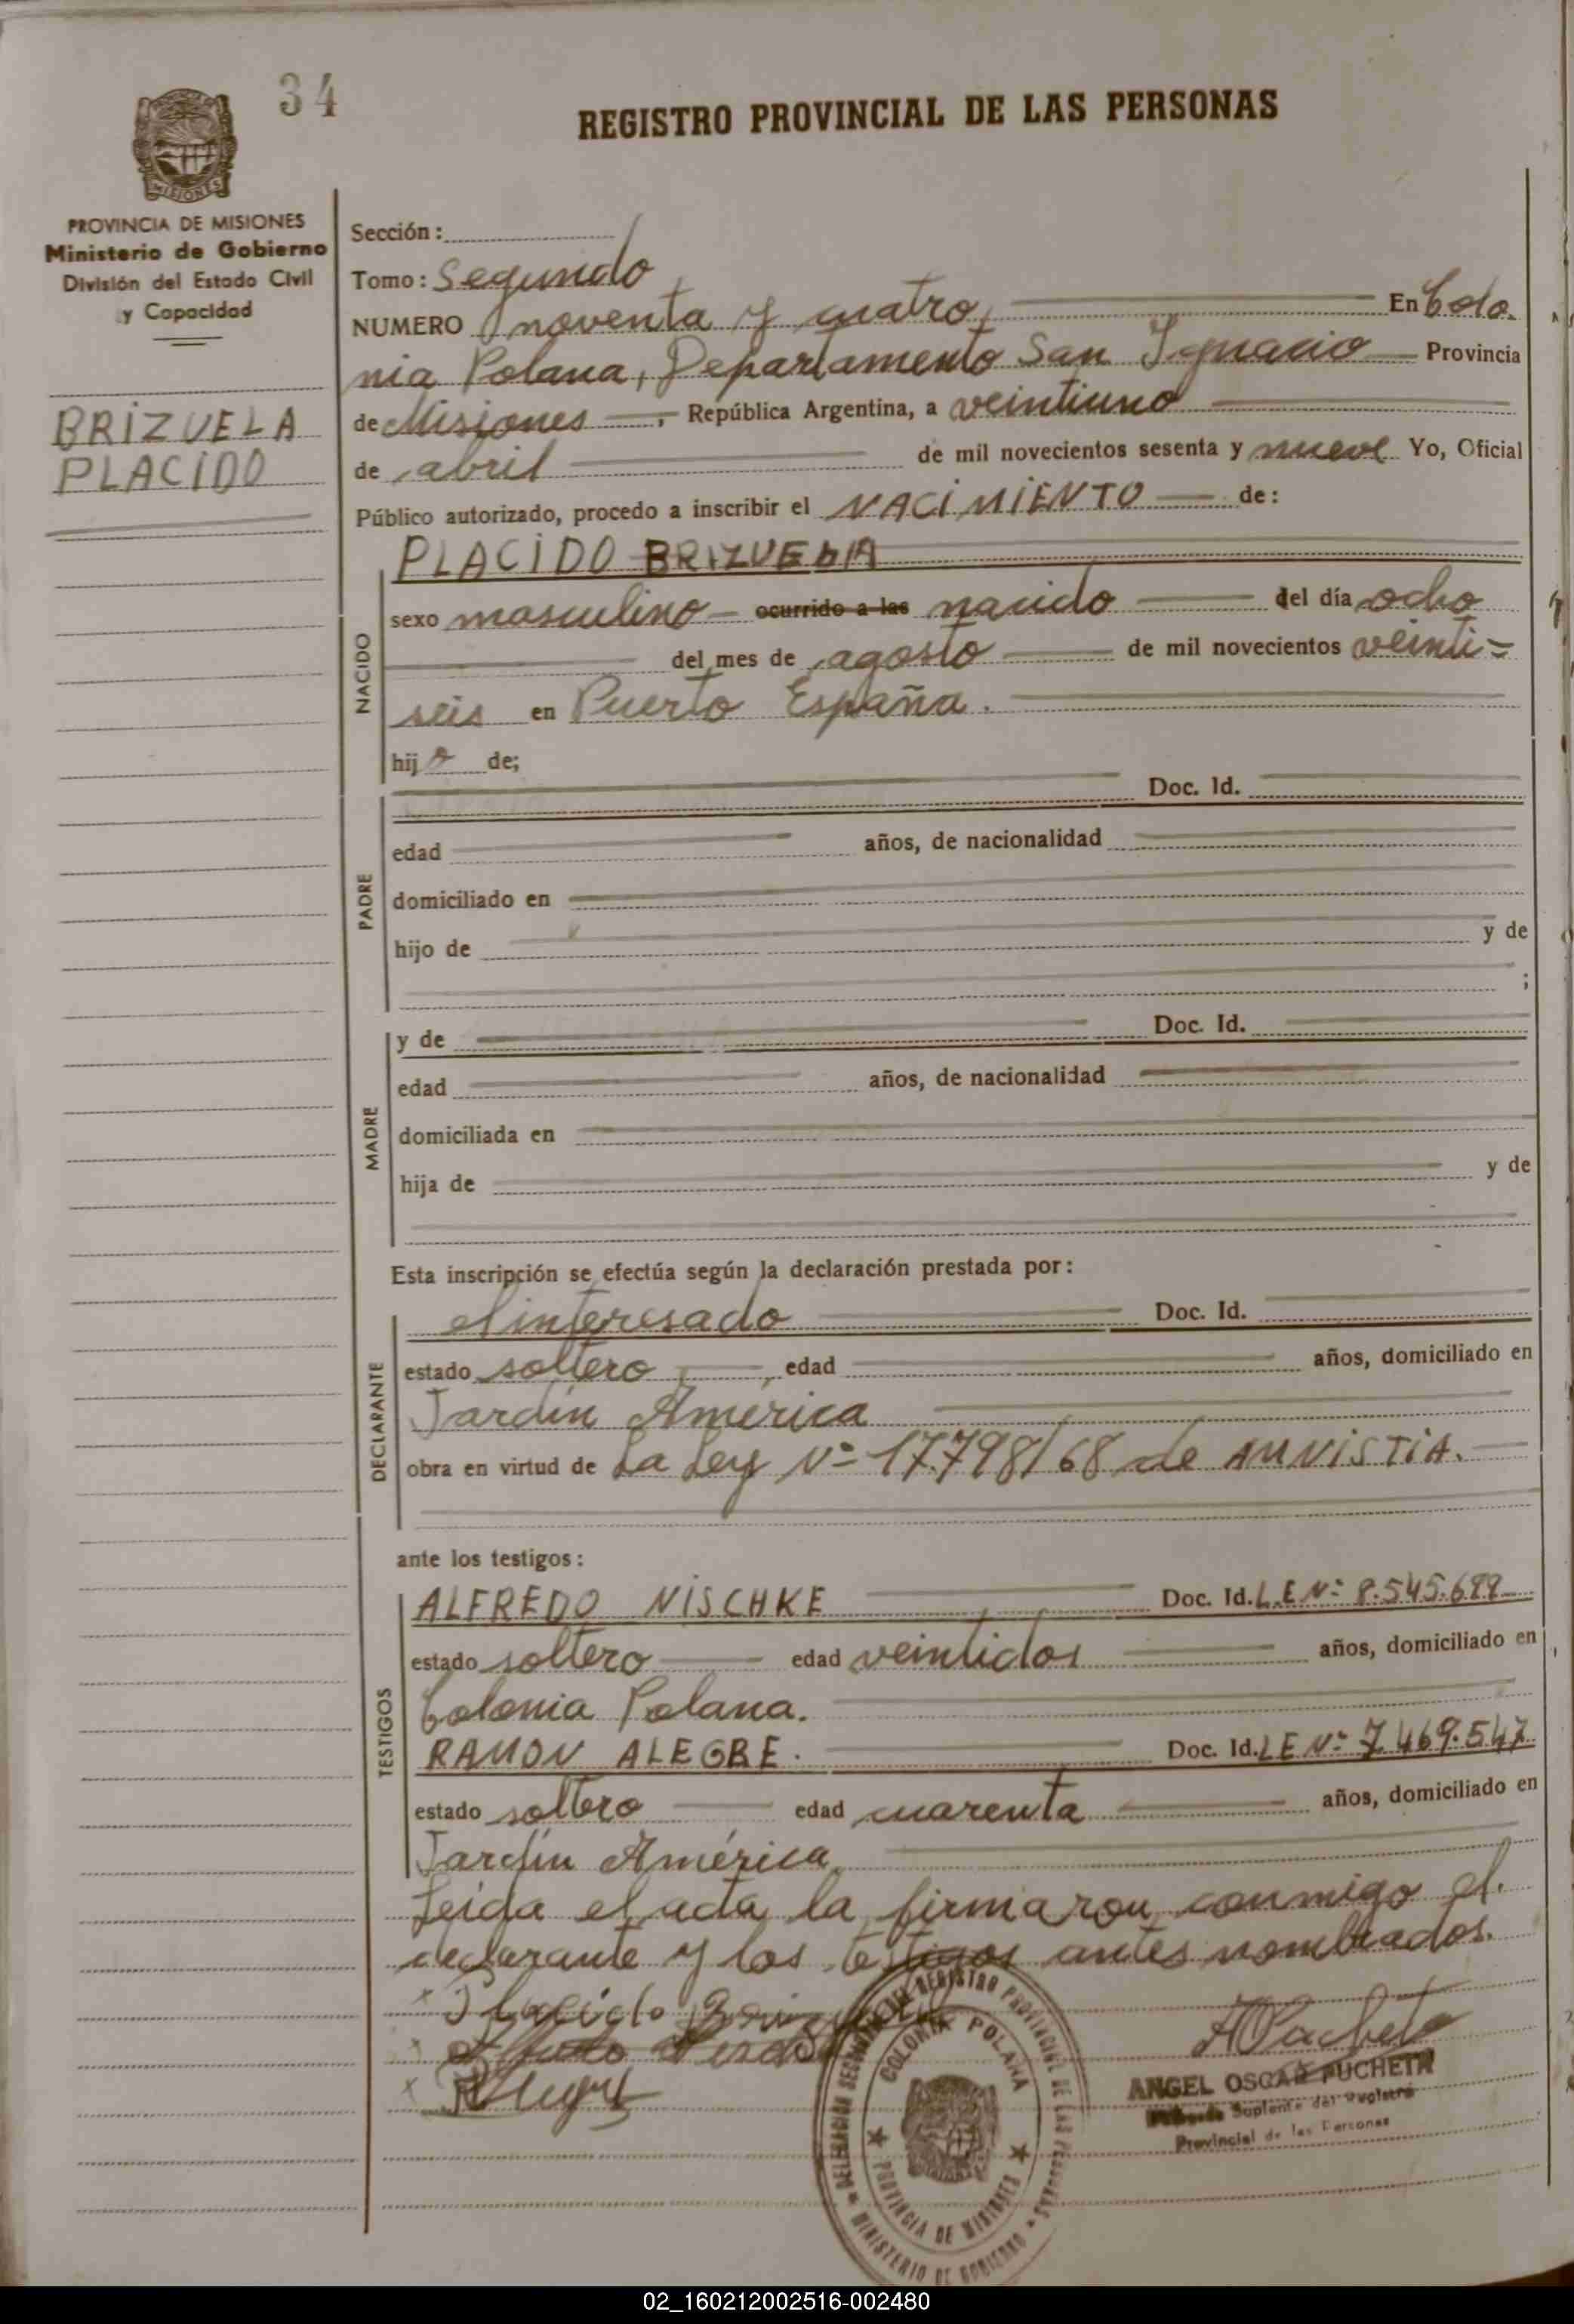 34
REGISTRO PROVINCIAL DE LAS PERSONAS
MISIONES
PROVINCIA DE MISIONES
Ministerio de Gobierno
División del Estado Civil
y Capacidad
BRIZUELA
PLACIDO
Sección:
Tomo: Segundo
NUMERO noventa y cuatro, En Colo.
nia Polana, Departamento San Ignacio Provincia
de Misiones, República Argentina, a veintiuno
de abril de mil novecientos sesenta y nueve Yo, Oficial
Público autorizado, procedo a inscribir el NACIMIENTO de:
PLACIDO BRIZUELA
NACIDO
sexo masculino ocurrido a las nacido del día ocho
del mes de agosto de mil novecientos veinti=
seis en Puerto España.
hijo de;
PADRE
Doc. Id.
edad años, de nacionalidad
domiciliado en
hijo de y de
;
MADRE
y de Doc. Id.
edad años, de nacionalidad
domiciliada en
hija de y de
Esta inscripción se efectúa según la declaración prestada por:
DECLARANTE
el interesado Doc. Id.
estado soltero, edad años, domiciliado en
Jardín América
obra en virtud de La Ley Nº 17.798/68 de AMNISTIA.
ante los testigos:
TESTIGOS
ALFREDO NISCHKE Doc. Id. L.E Nº 8.545.699
estado soltero edad veintidos años, domiciliado en
Colonia Polana.
RAMON ALEGRE. Doc. Id. L E Nº 7.469.547
estado soltero edad cuarenta años, domiciliado en
Jardín América,
Leida el acta la firmaron conmigo el
declarante y los testigos antes nombrados.
Placido Brizuela
ANGEL OSCAR PUCHETA
Suplente del Registro
Provincial de las Personas
REGISTRO PROVINCIAL DE LAS PERSONAS
COLONIA POLANA
PROVINCIA DE MISIONES
MINISTERIO DE GOBIERNO
02_160212002516-002480